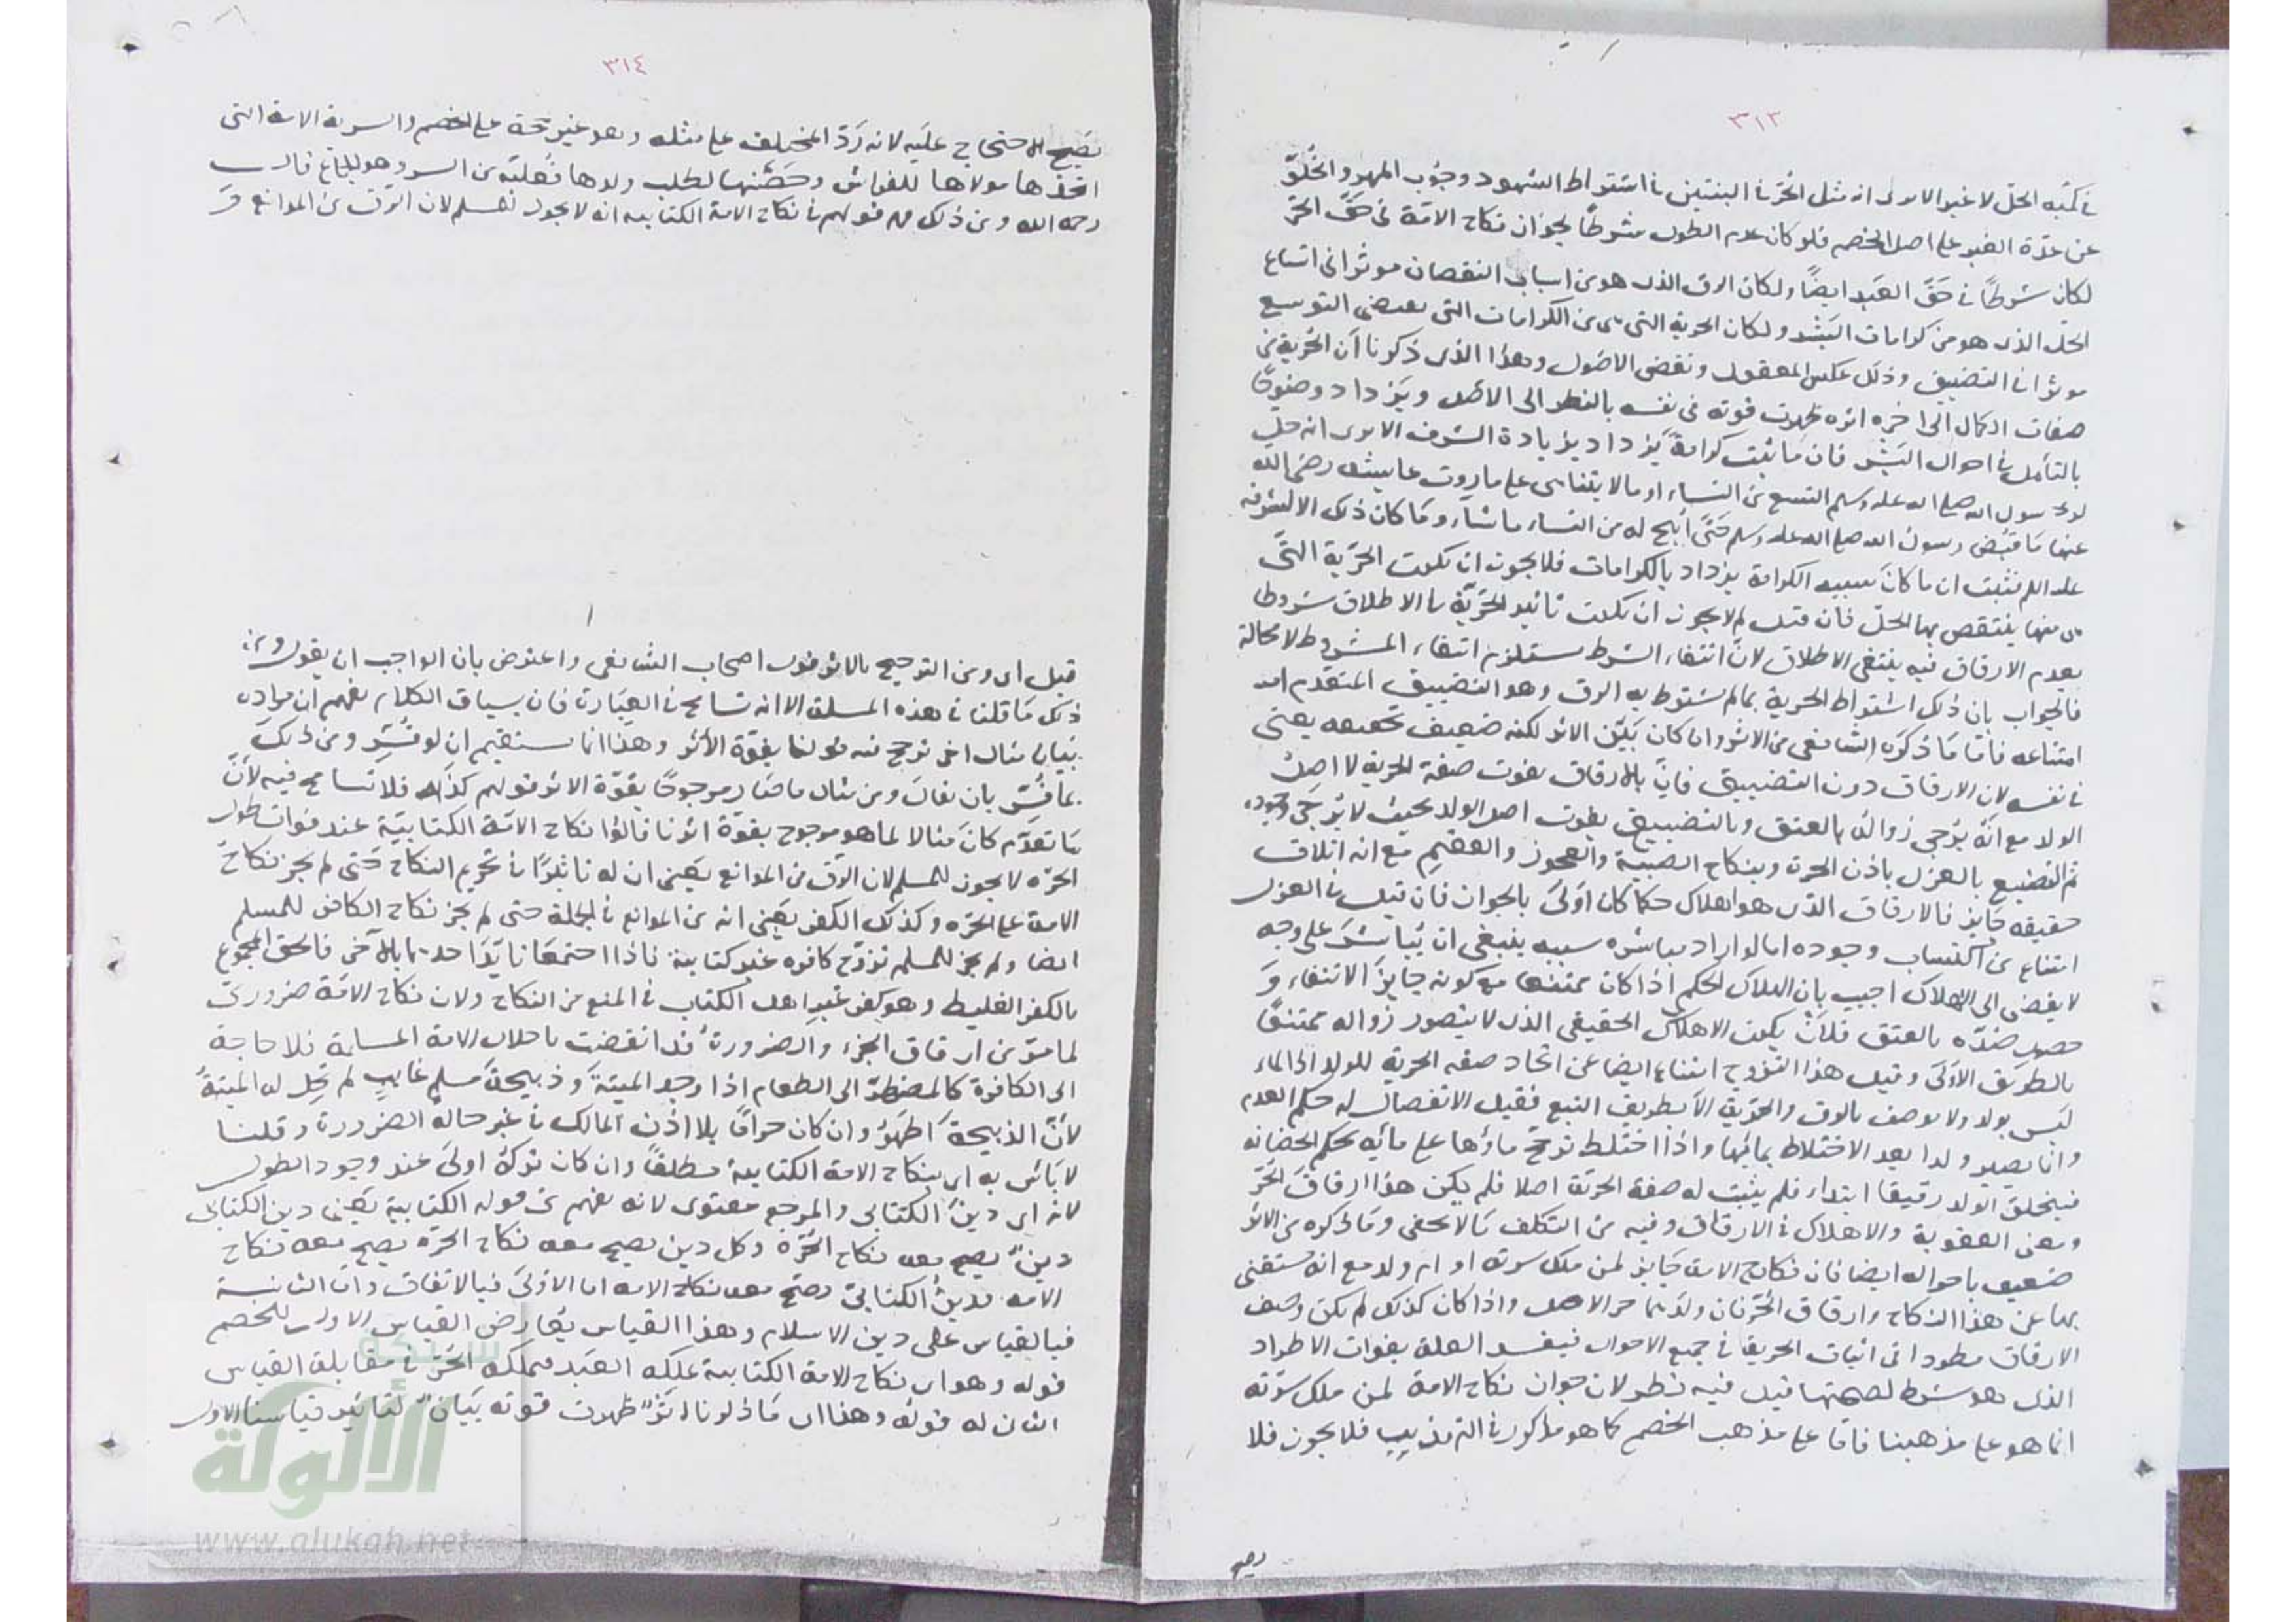 ٣١٣
عن عدة الغير على اصل الخصم فلو كان عدم الطول مشروطا لجواز نكاح الامة فى حق الحر
لكان شرطا فى حق العبد ايضا ولكان الرق الذى هو من اسباب النقصان موثرا فى اتساع
الحل الذى هو من كرامات البشر ولكان الحرية التى هى من الكرامات التى التوسيع
موثرا فى التضييق وذلك عكس المعقول ونقض الاصول وهذا الذى ذكرنا ان الحرية من
صفات الكمال الى اخره اثره ظهرت قوته فى نفسه بالنظر الى الاصل ويزداد وضوحا
بالتأمل فى احوال البشر فان ما ثبت كرامة يزداد بزيادة الشرف الا ترى انه حل
لرسول الله صلى الله عليه وسلم التسع من النساء او مالا يتناهى على ما روت عايشه رضى الله
عنها ما قبض رسول الله صلى الله عليه وسلم حتى ابيح له من النساء ما شاء وما كان ذلك الا لشرفه
عليه السلم فثبت ان ما كان سببه الكرامة يزداد بالكرامات فلا يجوز ان تكون الحرية التى
هى منها ينتقص بها الحل فان قيل لم لا يجوز ان تكون تاثير الحرية بالاطلاق مشروطا
بعدم الارقاق فيه ينتفى الاطلاق لان انتفاء الشرط يستلزم انتفاء المشروط لا محالة
فالجواب بان ذلك اشتراط الحرية بما لم يشترط به الرق وهو التضييق المتقدم
امتناعه فاما ما ذكره الشافعى من الاثر وان كان بين الاثر لكنه ضعيف يعنى
فى نفسه لان الارقاق دون التضييع فان بالارقاق يفوت صفة الحرية لا اصل
الولد مع انه يرجى زواله بالعتق وبالتضييع يفوت اصل الولد بحيث لا يرجى وجوده
ثم التضييع بالعزل باذن الحرة وبنكاح الصبية والعجوز والعقيم مع انه اتلاف
حقيقه جايز فالارقاق الذى هو اهلاك حكما كان اولى بالجواز فان قيل فى العزل
امتناع من اكتساب وجوده اما لو اراد مباشرة سببه ينبغى ان يباشر على وجه
لا يفضى الى الاهلاك اجيب بان الهلاك الحكمى اذا كان ممتنعا مع كونه جايز الانتفاء و
ضده بالعتق فلان يكون الاهلاك الحقيقى الذى لا يتصور زواله ممتنعا
بالطريق الاولى وقيل هذا التزوج امتناع ايضا عن اتحاد صفه الحرية للولد اذ الماء
ليس بولد ولا يوصف بالرق والحرية الا بطريق التبع فقبل الانفصال له حكم العدم
وانما يصير ولدا بعد الاختلاط بمائها واذا اختلط ترجح ماؤها على مائه بحكم الحضانه
فيخلق الولد رقيقا ابتداء فلم يثبت له صفة الحرية اصلا فلم يكن هذا ارقاق الحر
ومعنى العقوبة والاهلاك فى الارقاق وفيه من التكلف ما لا يخفى وما ذكره من الاثر
ضعيف باحواله ايضا فان نكاح الامة جايز لمن ملك سرية او ام ولد مع انه يستغنى
بها عن هذا النكاح وارقاق الحر فان ولد حر الاصل واذا كان كذلك لم يكن وصف
الارقاق مطردا فى اثبات الحريقا فى جميع الاحوال فيفسد العلة بفوات الاطراد
الذى هو شرط لصحتها قيل فيه نظر لان جواز نكاح الامة لمن ملك سرية
انما هو على مذهبنا فاما على مذهب الخصم كما هو مذكور فى التهذيب فلا يجوز فلا
٣١٤
يصح الاحتجاج عليه لانه رد المختلف على مثله وهو غير حجة على الخصم والسرية الامة التى
اتخذها مولاها للفراش وحصنها لطلب ولدها فعلية من السر وهو الجماع قال
رحمه الله ومن ذلك قولهم فى نكاح الامة الكتابيه انه لا يجوز للمسلم لان الرق من الموانع و
قيل اى ومن الترجيح بالاثر قول اصحاب الشافعى واعترض بان الواجب ان يقول ومن
ذلك ما قلنا فى هذه المسلة الا انه تسامح فى العبارة فان سياق الكلام يفهم ان مراده
بيان مثال اخر ترجح فيه قولنا بقوة الاثر وهذا انما يستقيم ان لو فسر ومن ذلك
بما فسر بان يقال ومن مثال ما صار مرجوحا بقوة الاثر قولهم كذا فلا تسامح فيه لان
ما تقدم كان مثالا لما هو مرجوح بقوة اثرنا قالوا نكاح الامة الكتابية عند فوات طول
الحره لا يجوز للمسلم لان الرق من الموانع يعنى ان له تاثيرا فى تحريم النكاح حتى لم يجز نكاح
الامة على الحره وكذلك الكفر يعنى انه من الموانع فى الجملة حتى لم يجز نكاح الكافر للمسلم
ايضا ولم يجز للمسلم تزوج كافره غير كتابية فاذا اجتمعا تايد احدهما بالآخر فالحق المجموع
بالكفر الغليظ وهو كفر غير اهل الكتاب فى المنع من النكاح ولان نكاح الامة ضرورى
لما مر من ارقاق الجزء والضرورة قد انقضت باحلال الامة المسلمة فلا حاجة
الى الكافرة كالمضطر الى الطعام اذا وجد الميتة وذبيحة مسلم غايب لم تحل له الميتة
لان الذبيحة اطهر وان كان حراما بلا اذن المالك فى غير حالة الضرورة وقلنا
لا بأس به اى بنكاح الامة الكتابية مطلقا وان كان تركه اولى عند وجود الطول
لانه اى دين الكتابى والمرجع معنوى لانه يفهم من قوله الكتابية يعنى دين الكتابى
دين يصح معه نكاح الحرة وكل دين يصح معه نكاح الحرة يصح معه نكاح
الامه فدين الكتابى يصح معه نكاح الامه اما الاولى فبالاتفاق واما الثانية
فبالقياس على دين الاسلام وهذا القياس يعارض القياس الاول للخصم
قوله وهو اى نكاح الامة الكتابية يملكه العبد فيملكه الحر فى مقابلة القياس
الثانى له قوله وهذا اى ما ذكرنا اثر ظهرت قوته بيان لتاثير قياسنا الاول
شبكة
الألوكة
www.alukah.net